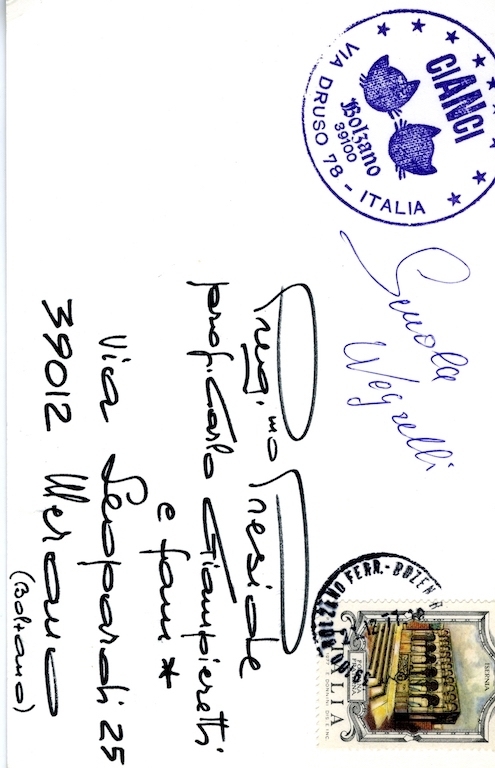 CIANCI
Bolzano
39100
VIA DRUSO 78 - ITALIA
Scuola
Negrelli
39100 BOLZANO FERR. - BOZEN
ISERNIA
Preg.mo Preside
prof. Carlo Giampieretti
e fam *
Via Leopardi 25
39012 Merano
(Bolzano)